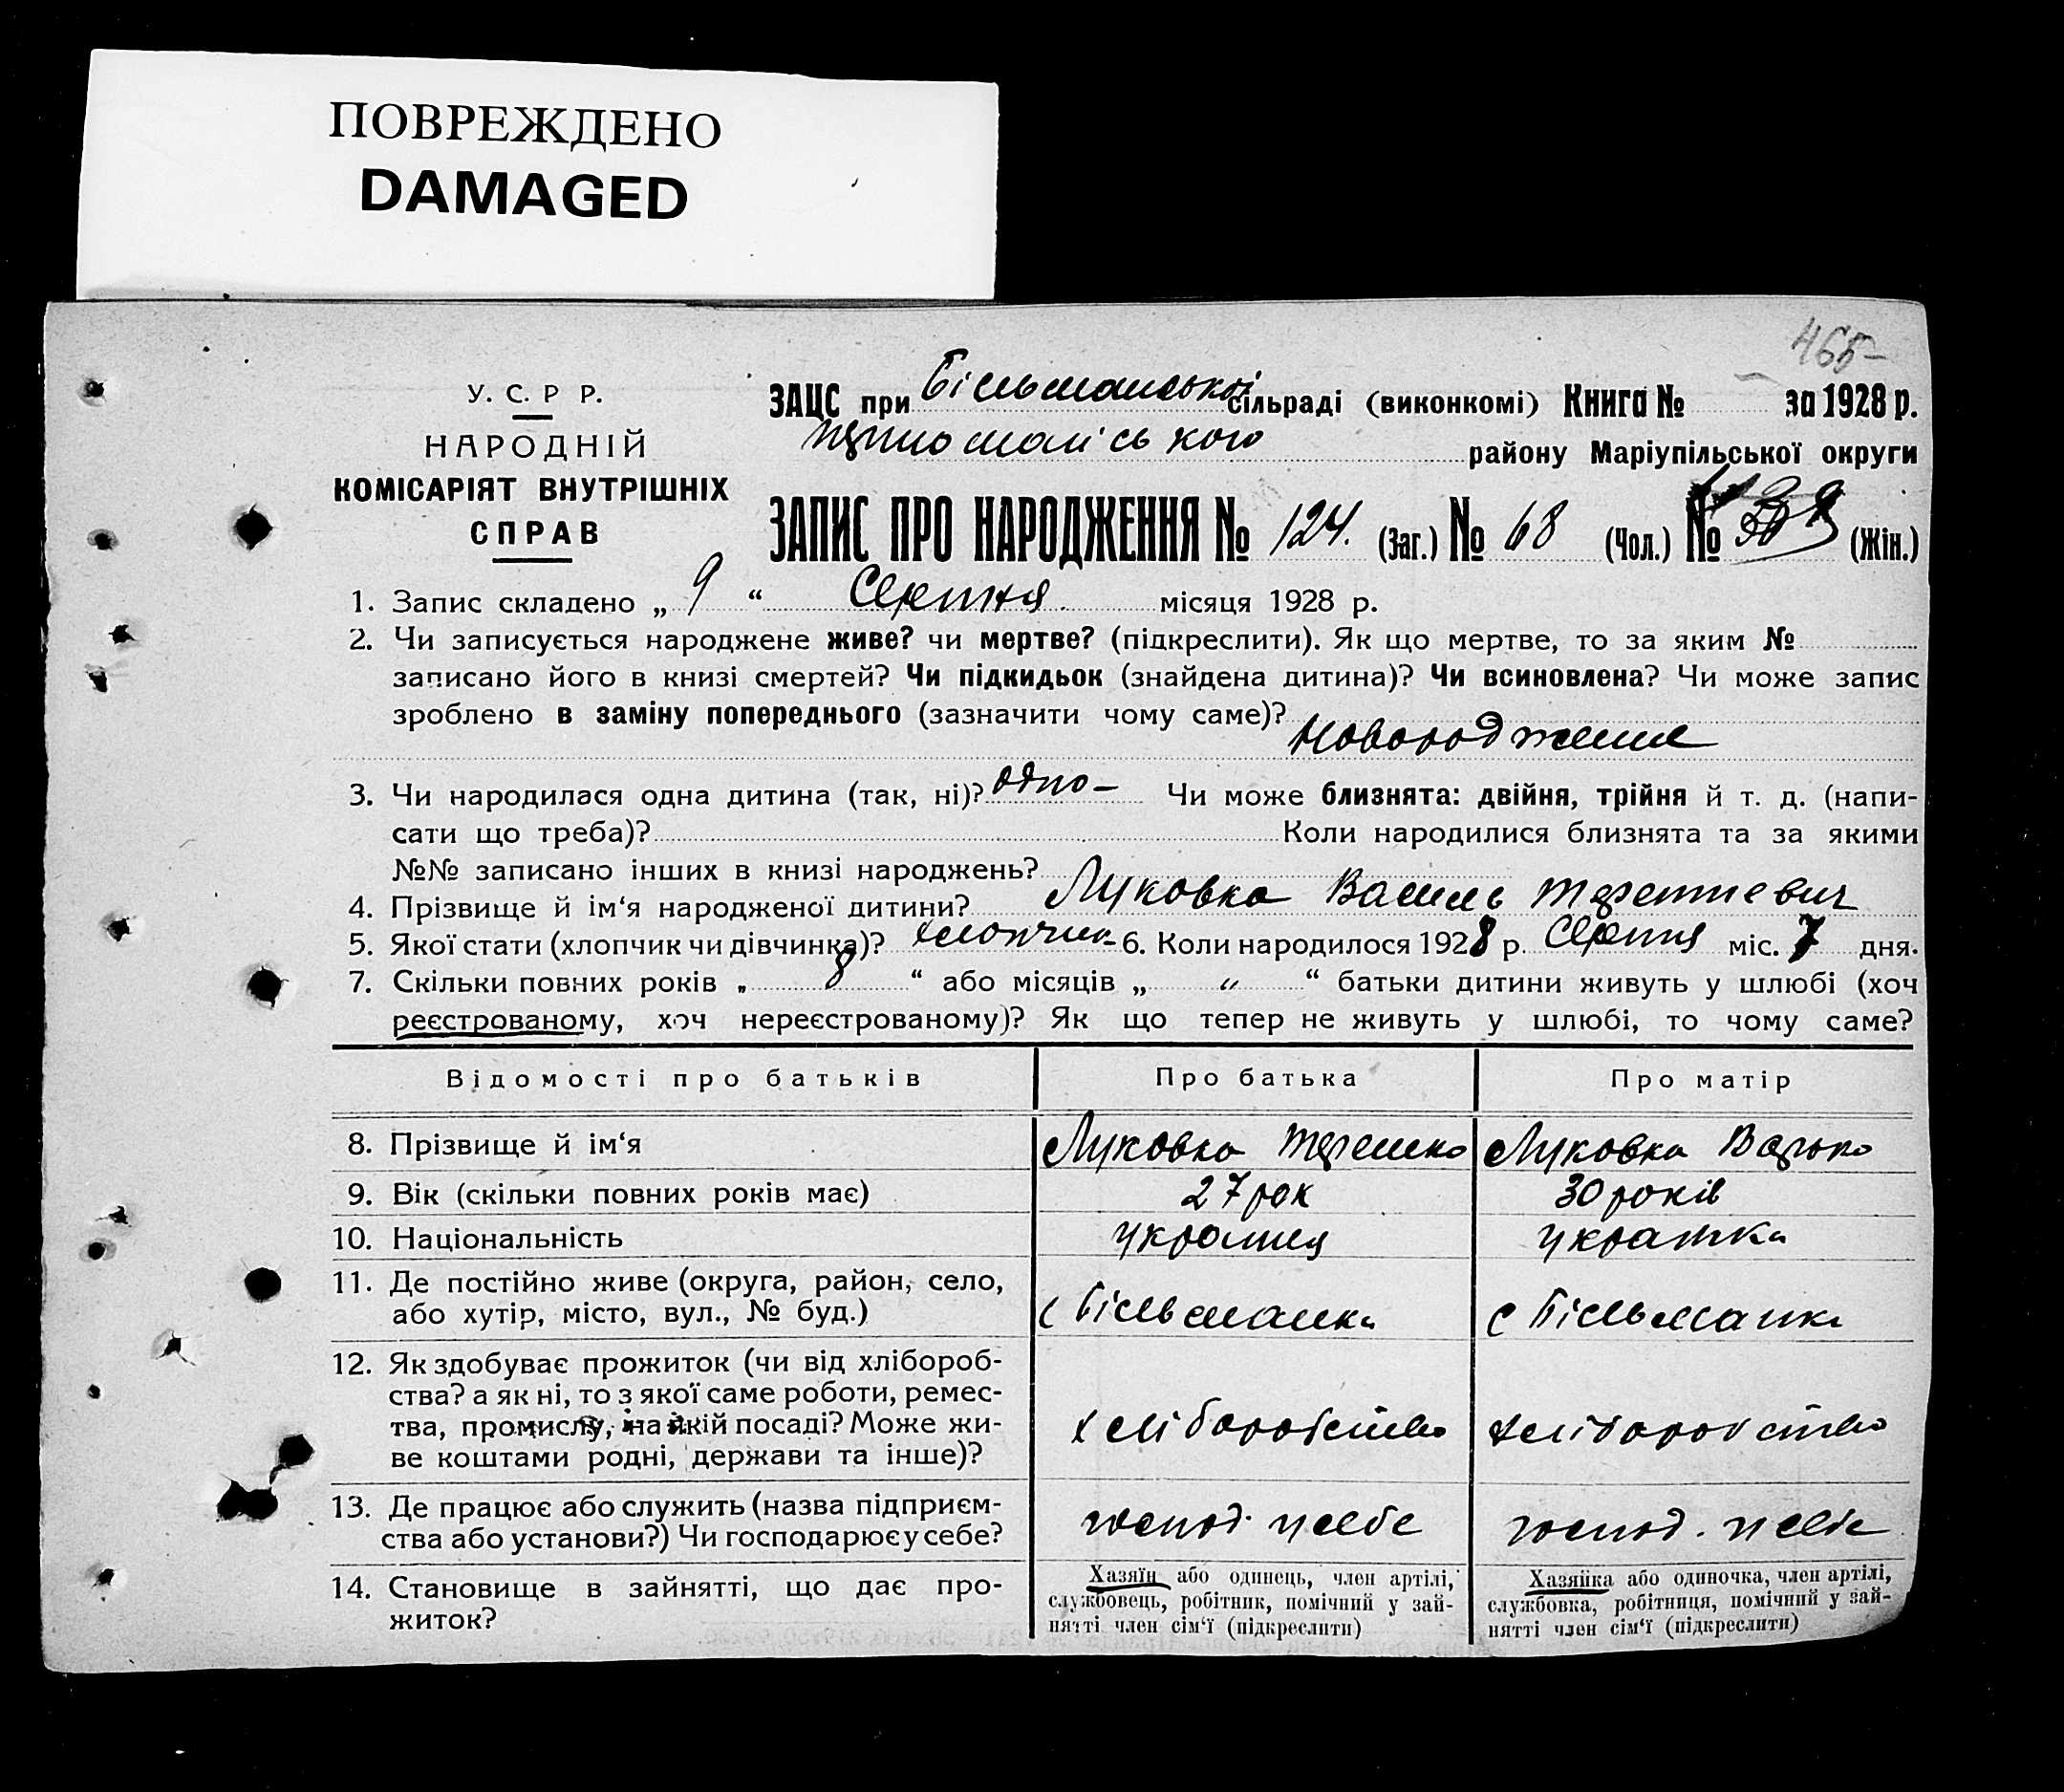 ПОВРЕЖДЕНО
DAMAGED
465
У. С. Р Р.
НАРОДНІЙ
КОМІСАРІЯТ ВНУТРІШНІХ
СПРАВ
ЗАЦС при Більманській сільраді (виконкомі) Книга № за 1928 р.
району Маріупільської округи
ЗАПИС ПРО НАРОДЖЕННЯ № 124. (Заг.) № 68 (Чол.) № (Жін.)
1. Запис складено „ 9 “ Серпня місяця 1928 р.
2. Чи записується народжене живе? чи мертве? (підкреслити). Як що мертве, то за яким №
записано його в книзі смертей? Чи підкидьок (знайдена дитина)? Чи всиновлена? Чи може запис
зроблено в заміну попереднього (зазначити чому саме)?
Новородження
3. Чи народилася одна дитина (так, ні)? одно – Чи може близнята: двійня, трійня й т. д. (напи-
сати що треба)? Коли народилися близнята та за якими
№№ записано інших в книзі народжень?
4. Прізвище й ім‘я народженої дитини? Луковка Василь Терентиевич
5. Якої стати (хлопчик чи дівчинка)? хлопчик - 6. Коли народилося 1928 р. Серпня міс. 7 дня.
7. Скільки повних років „ 8 “ або місяців „ “ батьки дитини живуть у шлюбі (хоч
реєстрованому, хоч нереєстрованому)? Як що тепер не живуть у шлюбі, то чому саме?
Відомості про батьків Про батька Про матір
8. Прізвище й ім‘я Луковка Терешко Луковка Варька
9. Вік (скільки повних років має) 27 рок 30 років
10. Національність українец українка
11. Де постійно живе (округа, район, село,
або хутір, місто, вул., № буд.) с Більманка с Більманка
12. Як здобуває прожиток (чи від хлібороб-
ства? а як ні, то з якої саме роботи, ремес-
тва, промислу, на якій посаді? Може жи- хліборобство хліборобство
ве коштами родні, держави та інше)?
13. Де працює або служить (назва підприєм-
ства або установи?) Чи господарює у себе? господ. у себе господ. у себе
14. Становище в зайнятті, що дає про-
житок?
Хазяїн або одинець, член артілі,
службовець, робітник, помічний у зай-
нятті член сім‘ї (підкреслити)
Хазяйка або одиночка, член артілі,
службовка, робітниця, помічний у зай-
нятті член сім‘ї (підкреслити)